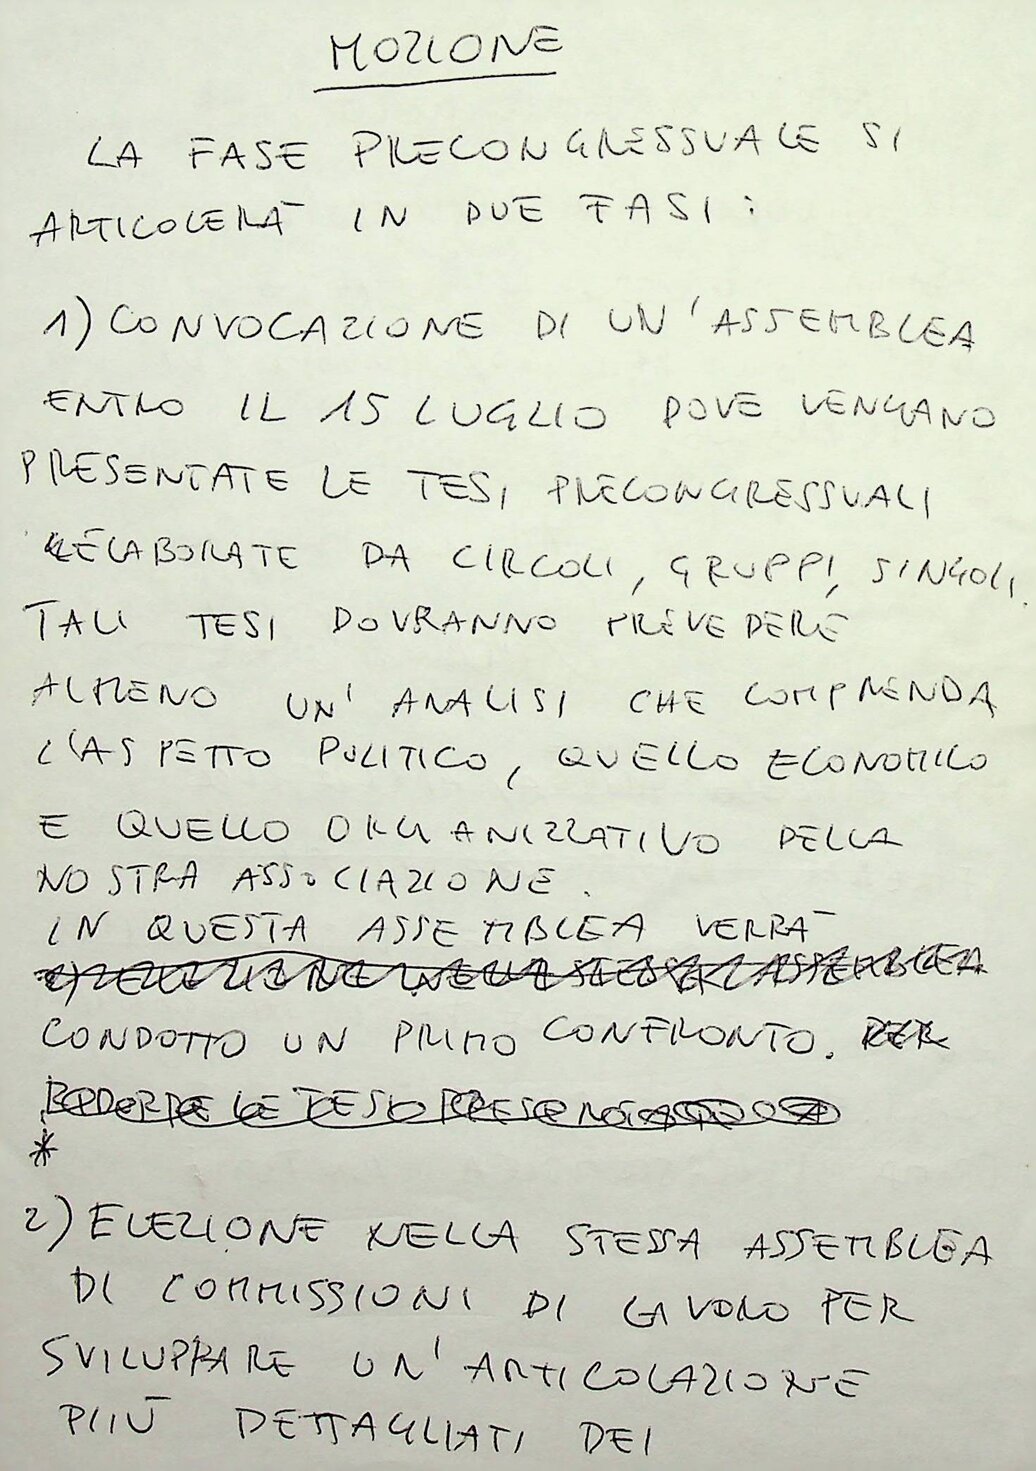 MOZIONE
LA FASE PRECONGRESSUALE SI
ARTICOLERÀ IN DUE FASI:
1) CONVOCAZIONE DI UN'ASSEMBLEA
ENTRO IL 15 LUGLIO DOVE VENGANO
PRESENTATE LE TESI PRECONGRESSUALI
ELABORATE DA CIRCOLI, GRUPPI, SINGOLI.
TALI TESI DOVRANNO PREVEDERE
ALMENO UN'ANALISI CHE COMPRENDA
L'ASPETTO POLITICO, QUELLO ECONOMICO
E QUELLO ORGANIZZATIVO DELLA
NOSTRA ASSOCIAZIONE.
IN QUESTA ASSEMBLEA VERRÀ
2) ELEZIONE NELLA STESSA ASSEMBLEA
CONDOTTO UN PRIMO CONFRONTO. PER
LE TESI
*
2) ELEZIONE NELLA STESSA ASSEMBLEA
DI COMMISSIONI DI LAVORO PER
SVILUPPARE UN'ARTICOLAZIONE
PIÙ DETTAGLIATI DEI